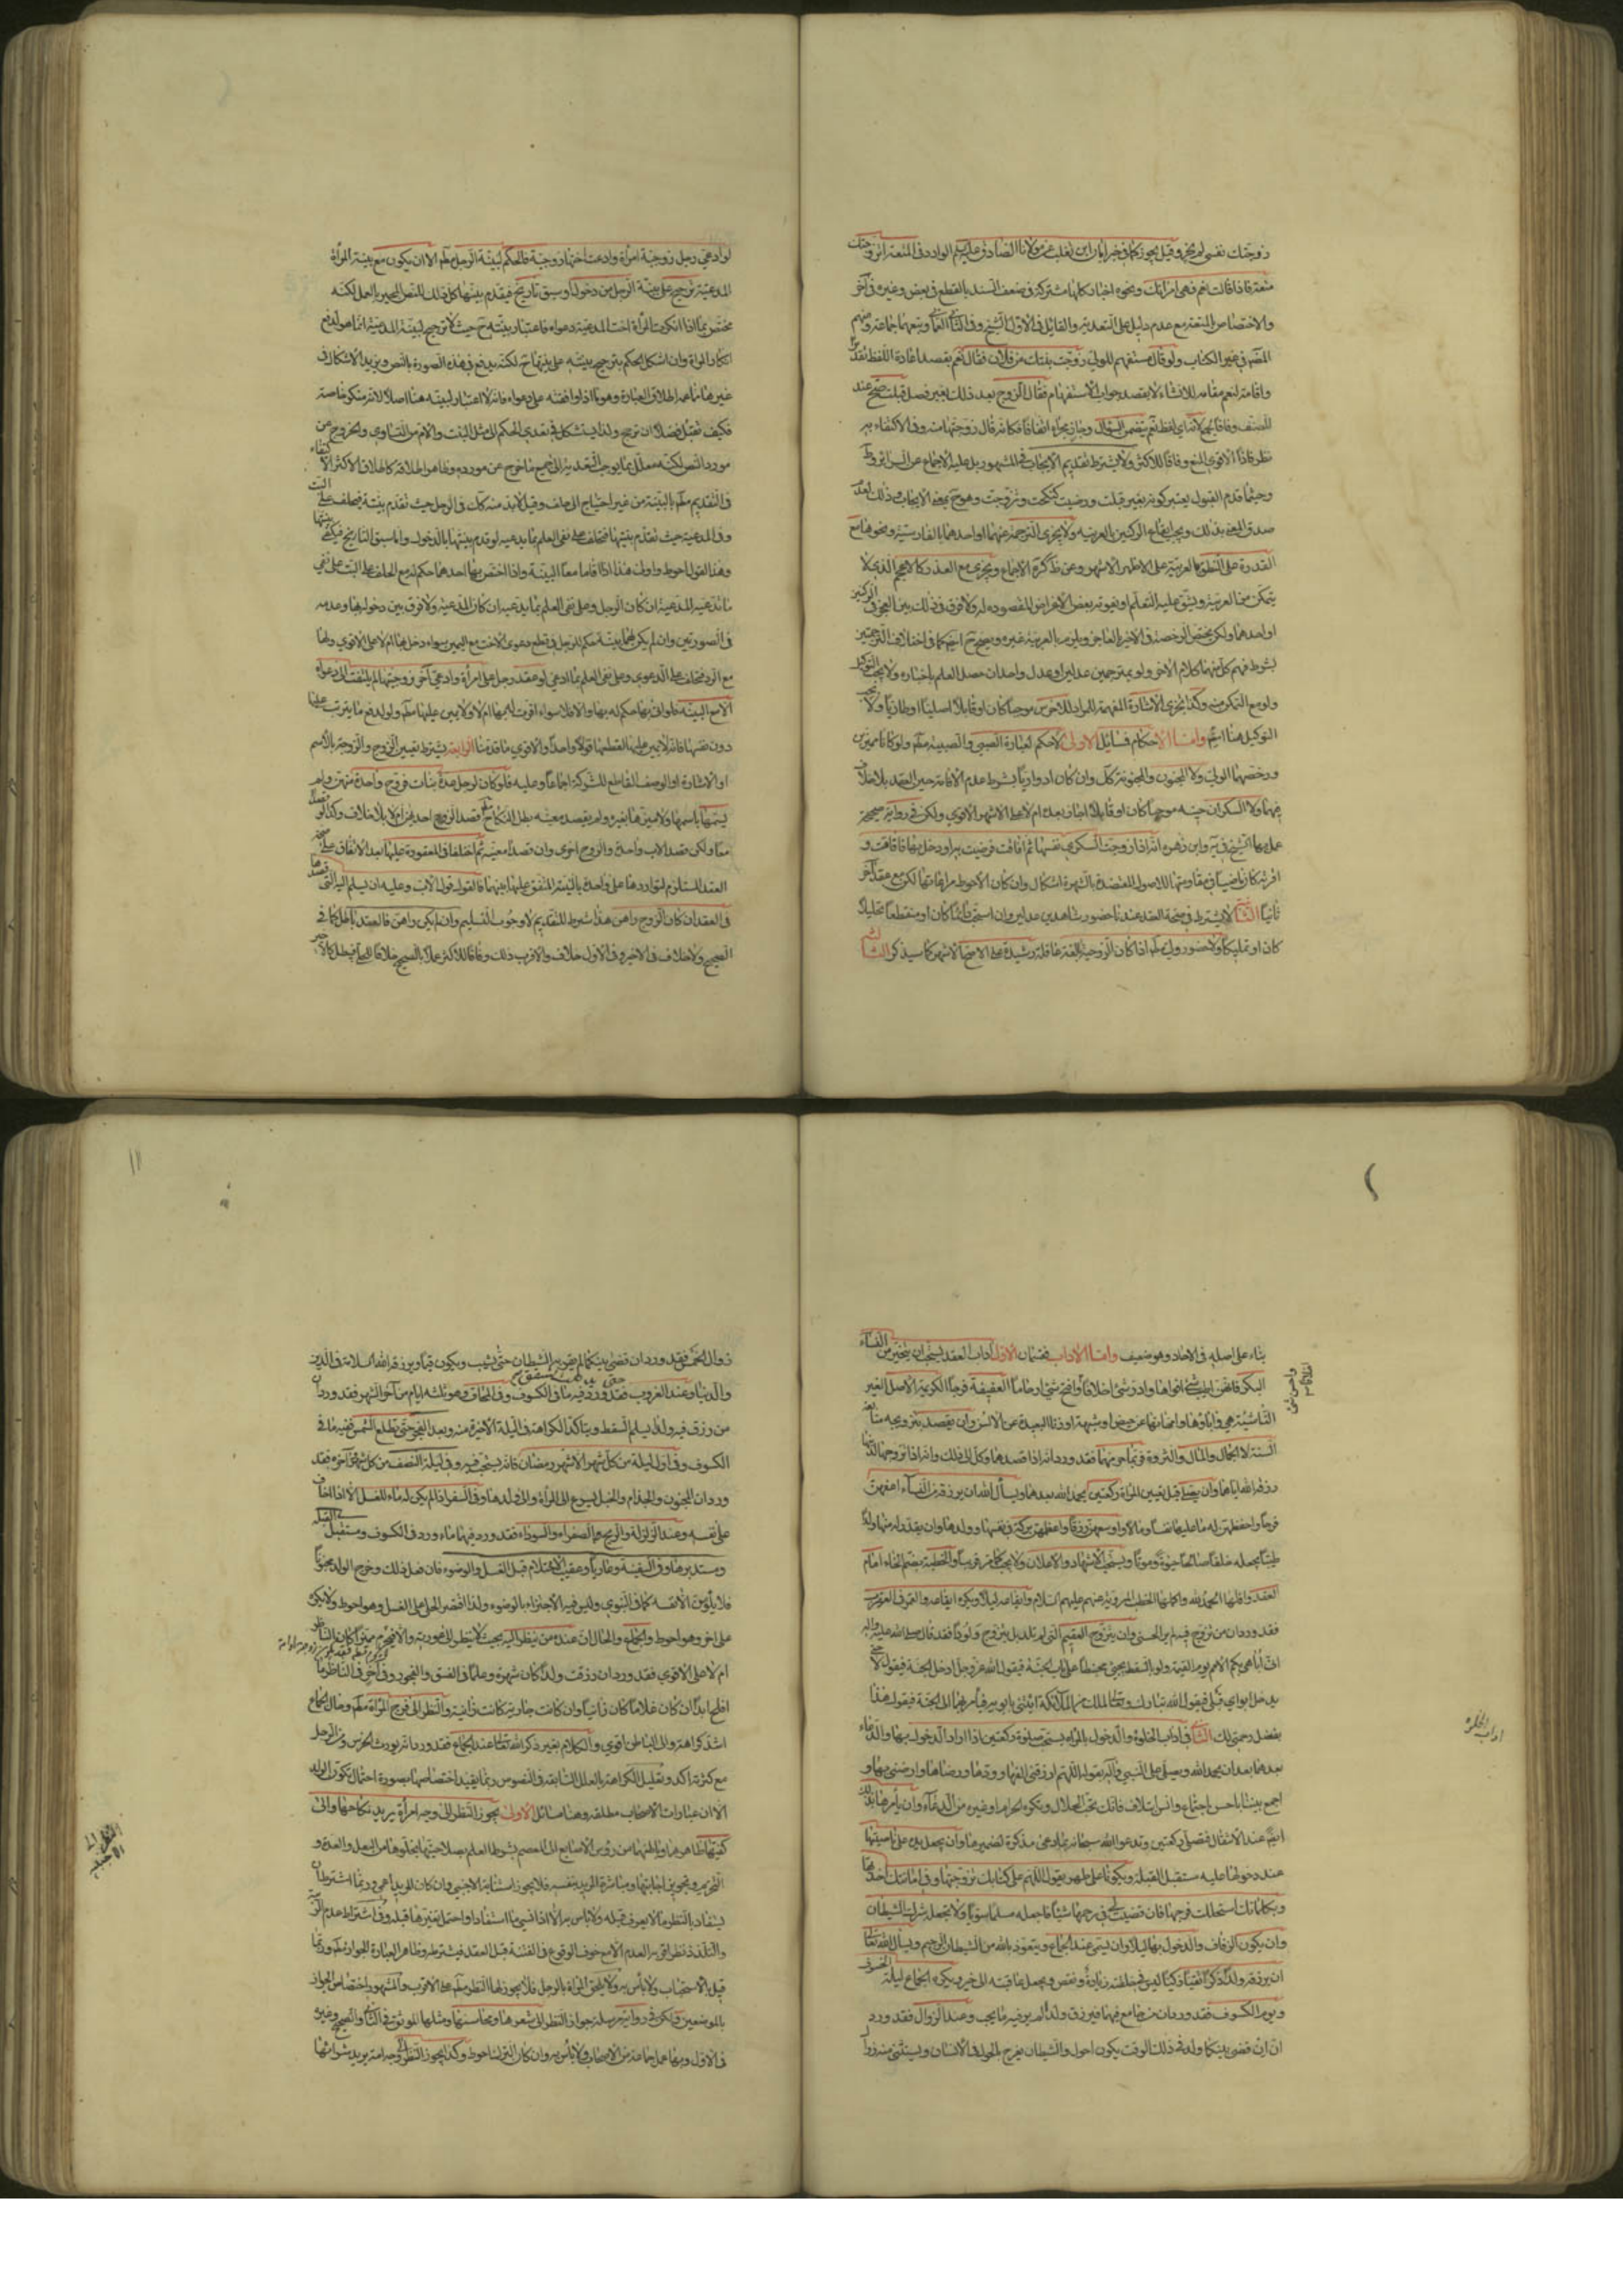 زوجتك نفسي لم يجز وقيل يجوز كما في خبر ابان ابن تغلب عن مولانا الصادق عليه السلم الوارد في المتعة اتزوجك
متعة فاذا قالت نعم فهي امراتك ونحوه اخبار كلها مشتركة في ضعف السند بالقطع في بعض وغيره في آخر
والاختصاص بالمتعة مع عدم دليل على التعدية والقائل في الاول الشيخ وفي الثاني وتبعهما جماعة ومنهم
المصنف في غير الكتاب ولو قال مستفهم للولي زوجت بنتك من فلان فقال نعم بقصد اعادة اللفظ تقديرا
واقامة نعم مقامه للانشاء لا بقصد جواب الاستفهام فقال الزوج بعد ذلك بغير فصل قبلت صح عند
المصنف وفاقا لان نعم يتضمن السؤال وجاز بجواء اتفاقا فكانه قال زوجتها منه وفي الاكتفاء به
نظر فاذا الاقوى المنع وفاقا للاكثر ولا يشترط تقديم الايجاب في المشهور بل عليه الاجماع عن السرائر وط
وحيثما قدم القبول يعتبر كونه بغير قبلت ورضيت كنكحت وتزوجت وهو ح بمعنى الايجاب وذلك لعدم
صدق المعنى بذلك ويجب ايقاع الركنين بالعربية ولا يجزي الترجمة عنهما او احدهما بالفارسية ونحوها مع
القدرة على النطق بالعربية على الاظهر الاشهر وعن ط كره الاجماع ويجزي مع العذر كالاعجم الذي لا
يتمكن من العربية ويشق عليه التعلم او يفوته بعض الاغراض المقصوده له ولا فرق في ذلك بين العجز في الركنين
او احدهما ولكن يختص الرخصة في الاخير بالعاجز ويلزم بالعربية غيره ويصح ح ايضا كما في اختلاف الترجمتين
بشرط فهم كل منهما كلام الاخر ولو بمترجمين عدلين او عدل واحد ان حصل العلم باخباره ولا يجب التوكيل
ولو مع التمكن منه وكذا يجزي الاشارة المفهمة للمراد للاخرس موجبا كان او قابلا اصليا او طاريا ولا يجب
التوكيل هنا ايضا واما الاحكام فمسائل الاولى لاحكم لعبارة الصبي والصبية مطلقا ولو كانا مميزين
ورخصهما الولي ولا المجنون والمجنونة كك وان كان ادواريا بشرط عدم الافاقة حين العقد بلا خلاف
فيهما ولا السكران حيثه موجبا كان او قابلا اجاز بعده ام لا على الاشهر الاقوى ولكن في رواية صحيحة
عمل بها الشيخ في يه وابن زهره انه اذا زوجت السكري نفسها ثم افاقت فرضيت به او دخل بها فافاقت و
اقرته كان ماضيا وفي مقاومتها للاصول المعتضدة بالشهرة اشكال وان كان الاحوط مراعاتها لكن مع عقد آخر
ثانيا الثانية لا يشترط في صحة العقد عندنا حضور شاهدين عدلين وان استحب دائما كان او منقطعا تحليلا
كان او تمليكا ولا حضور ولي لها اذا كان الزوجة بالغة عاقلة رشيدة على الاصح الاشهر كما سيذكر الثالثة
لو ادعى رجل زوجية امرأة وادعت اختها زوجيته فالحكم لبينة الرجل مطلقا الا ان يكون مع بينة المرأة
المدعية ترجيح على بينة الرجل من دخول او سبق تاريخ فيقدم بينتها كل ذلك للنص المجبر بالعمل لكنه
مختص بما اذا انكرت المرأة اخت المدعية دعواه فاعتبار بينته ح حيث لا ترجيح لبينة المدعية انما هو لدفع
انكار المرأة وان اشكل الحكم بترجيح بينته على بينتها ح لكنه يدفع في هذه الصورة بالنص ويزيد الاشكال في
غيرها مما عمه اطلاق العبارة وهو ما اذا وافقته على دعواه فانه لا اعتبار لبينته هنا اصلا لانه منكر خاصة
فكيف تقبل فضلا ان ترجح ولذا يستشكل في تعدي الحكم الى مثل البنت والام من التساوي والخروج عن
مورد النص لكنه معلل بما يوجب التعدية الى جميع ما خرج عن مورده وظاهر اطلاقه كاطلاق الاكثر الاكتفاء
في التقديم مطلقا بالبينة من غير احتياج الى حلف وقيل لابد منه كك في الرجل حيث تقدم بينته فيحلف على البت
وفي المدعية حيث تقدم بينتها فتحلف على نفي العلم بما يدعيه لو قدم بينتها بالدخول واما سبق التاريخ فيكفي بينتها
وهذا القول احوط واولى هذا اذا اقاما معا البينة واذا اختص بها احدهما حكم له مع الحلف على البت على نفي
ما تدعيه المدعية ان كان الرجل وعلى نفي العلم بما يدعيه ان كان المدعية ولا فرق بين دخوله بها وعدمه
في الصورتين وان لم يكن لهما بينة حكم للرجل في قطع دعوى الاخت مع اليمين سواء دخل بها ام لا على الاقوى ولها
مع الرد فتحلف على الدعوى وعلى نفي العلم بما ادعى لو عقد رجل على امرأة وادعى آخر زوجيتها لم يلتفت الى دعواه
الا مع البينة فلو اتى بها حكم له بها والا فلا سواء اقرت له بها ام لا ولا يمين عليها مطلقا ولو لدفع ما يترتب عليها
دون ضمنها فانه لا يمين عليها لقطعها قولا واحدا والاقوى ما قدمنا الرابعة يشترط تعيين الزوج والزوجة بالاسم
او الاشارة او الوصف القاطع للشركة اجماعا وعليه فلو كان لرجل عدة بنات فزوج واحدة منهن ولم
يسمها باسمها ولا ميزها بغيره ولم يقصد معينة بطل النكاح قصد الزوج احديهن ام لا بلا خلاف وكذا لو
معا ولكن قصد الاب واحدة والزوج اخرى وان قصدا معينة ثم اختلفا في المعقودة عليها بعد الاتفاق على صحة
العقد المستلزم لتواردها على واحدة بالنية المتفق عليها بينهما فالقول قول الاب وعليه ان يسلم اليه التي قصدها
في العقد ان كان الزوج راهن هذا شرط للتقديم لا وجوب التسليم وان لم يكن راهن فالعقد باطل كما في
الصحيح ولا خلاف في الاخير وفي الاول خلاف والاقرب ذلك وفاقا للاكثر عملا بالصحيح خلافا للحلي فيبطل كالاخير
بناء على اصله في الاحاد وهو ضعيف واما الاداب فقسمان الاول آداب العقد يستحب ان يتخير من النساء
البكر فانهن اطيب شئ افواها وادر شئ اخلافا وافتح شئ ارحاما العفيفة فرجا الكريمة الاصل الغير
الناشئة هي واباؤها وامهاتها عن حيض او شبهة او زنا البعيدة عن الالسن وان يقصد بتزويجه متابعة
السنة لا الجمال والمال والثروة فربما حرمهما فقد ورد انه اذا قصدهما وكل الى ذلك وانه اذا تزوجها لدينها
رزقه الله اياهما وان يصلي قبل تعيين المرأة ركعتين يحمد الله بعدهما ويسأل الله ان يرزقه من النساء اعفهن
فرجا واحفظهن له ما عليها نفسا ومالا واوسعهن رزقا واعظمهن بركة في نفسها وولدها وان يقدر له منها ولدا
طيبا يجعله خلفا صالحا حيوة وموتا ويستحب الاشهاد والاعلان ولا يجب كما مر قريبا والخطبة بضم الخاء امام
العقد واقلها الحمد لله واكملها الخطب المروية عنهم عليهم السلام وايقاعه ليلا ويكره ايقاعه والقمر في العقرب
فقد ورد ان من تزوج فيه لم ير الحسنى وان يتزوج العقيم التي لم تلد بل يتزوج ولودا فقد قال صلى الله عليه واله
اني اباهي بكم الامم يوم القيمة ولو بالسقط يجئ محبنطا على باب الجنة فيقول الله عز وجل ادخل الجنة فيقول لا حتى
يدخل ابواي قبلي فيقول الله تبارك وتعالى لملك من الملائكة ائتني بابويه فيأمر بهما الى الجنة فيقول هذا
بفضل رحمتي لك الثاني في اداب الخلوة والدخول بالمرأة يستحب صلوة ركعتين اذا اراد الدخول بها والدعاء
بعدهما بعد ان يحمد الله ويصلي على النبي وآله بقوله اللهم ارزقني الفها وودها ورضاها وارضني بها و
اجمع بيننا باحسن اجتماع وانس ايتلاف فانك تحب الحلال وتكره الحرام او غيره من الدعاء وان يأمرها بذلك
ايضا عند الانتقال فتصلي ركعتين وتدعو الله سبحانه بما دعى مذكرة لضميرها وان يجعل يده على ناصيتها
عند دخولها عليه مستقبل القبلة ويكونا على طهر بقول اللهم على كتابك تزوجتها وفي امانتك اخذتها
وبكلماتك استحللت فرجها فان قضيت لي في رحمها شيئا فاجعله مسلما سويا ولا تجعله شرك الشيطان
وان يكون الزفاف والدخول بها ليلا وان يسمي عند الجماع ويتعوذ بالله من الشيطان الرجيم ويسأل الله تعالى
ان يرزقه ولدا ذكرا تقيا زكيا ليس في خلقه زيادة ونقص ويجعل عاقبته الى خير ويكره الجماع ليلة الخسوف
ويوم الكسوف فقد ورد ان من جامع فيهما فيرزق ولدا لم ير فيه ما يحب وعند الزوال فقد ورد
انه ان قضي بينكما ولد في ذلك الوقت يكون احول والشيطان يفرح بالحول في الانسان ويستثنى منه زوال
اداب الخلوة
۱۱
زوال الخميس فقد ورد ان قضي بينكما لم يقربه الشيطان حتى يشيب ويكون فهما ويرزقه الله السلامة في الدين
والدنيا وعند الغروب حتى يذهب الشفق فقد ورد فيه ما في الكسوف وفي المحاق وهو ثلثه ايام من آخر الشهر فقد ورد ان
من رزق فيه ولدا يسلم لسقط ويتأكد الكراهة في الليلة الاخيرة منه وبعد الفجر حتى تطلع الشمس ففيه ما في
الكسوف وفي اول ليلة من كل شهر الا شهر رمضان فانه يستحب فيه وفي ليلة النصف من كل شهر وآخره فقد
ورد ان الجنون والجذام والخبل يسرع الى المرأة والى ولدها وفي السفر اذا لم يكن له ماء للغسل الا اذا خاف
على نفسه وعند الزلزلة والريح الصفراء والسوداء فقد ورد فيهما ما ورد في الكسوف ومستقبل القبلة
ومستدبرها وفي السفينة وعاريا وعقيب الاحتلام قبل الغسل والوضوء فان فعل ذلك وخرج الولد مجنونا
فلا يلومن الا نفسه كما في النبوي وليس فيه الاجتزاء بالوضوء ولذا اقتصر الحلي على الغسل وهو احوط ولا يكره
على اخر وهو احوط والجماع والحال ان عنده من ينظر اليه بحيث لا ينظر الى عورته والا فيحرم مميزا كان الناظر
ام لا على الاقوى فقد ورد ان رزقت ولدا كان شهرة وعلما في الفسق والفجور وفي آخر في الناظر ما
افلح ابدا ان كان غلاما كان زانيا وان كانت جارية كانت زانية والنظر الى فرج المرأة مطلقا وحال الجماع
اشد كراهة والى الباطن اقوى والكلام بغير ذكر الله تعالى عند الجماع فقد ورد انه يورث الخرس ومن الرجل
مع كثرته اكد وتعليل الكراهة بالعلل السابقة في النصوص ربما يفيد اختصاصها بصورة احتمال تكون الولد
الا ان عبارات الاصحاب مطلقه وهنا مسائل الاولى يجوز النظر الى وجه امرأة يريد نكاحها والى
كفيها ظاهرهما وباطنهما من رؤس الاصابع الى المعصم بشرط العلم بصلاحيتها بخلوها من البعل والعدة و
التحريم وتجويز اجابتها ومباشرة المريد بنفسه فلا يجوز استنابة الاجنبي وان كان المريد اعمى وربما اشترط ان
يستفاد بالنظر ما لا يعرف قبله ولا باس به الا اذا نسي ما استفاد او احتمل تغيرها قبله وفي اشتراط عدم الريبة
والتلذذ نظر اقربه العدم الا مع خوف الوقوع في الفتنة قبل العقد فيشترط وظاهر العبارة الجواز مطلقا وربما
قيل بالاستحباب ولا بأس به ولا يلحق المرأة بالرجل فلا يجوز لها النظر مطلقا على الاقرب والمشهور اختصاص الجواز
بالموضعين ولكن في رواية مرسلة جواز النظر الى شعرها ومحاسنها ومثلها الموثق في الثاني والصحيح وغيره
في الاول وبها عمل جماعة من الاصحاب ولا بأس به وان كان الترك احوط وكذا يجوز النظر الى وجه امة يريد شرائها
النظر الى الاجنبيه